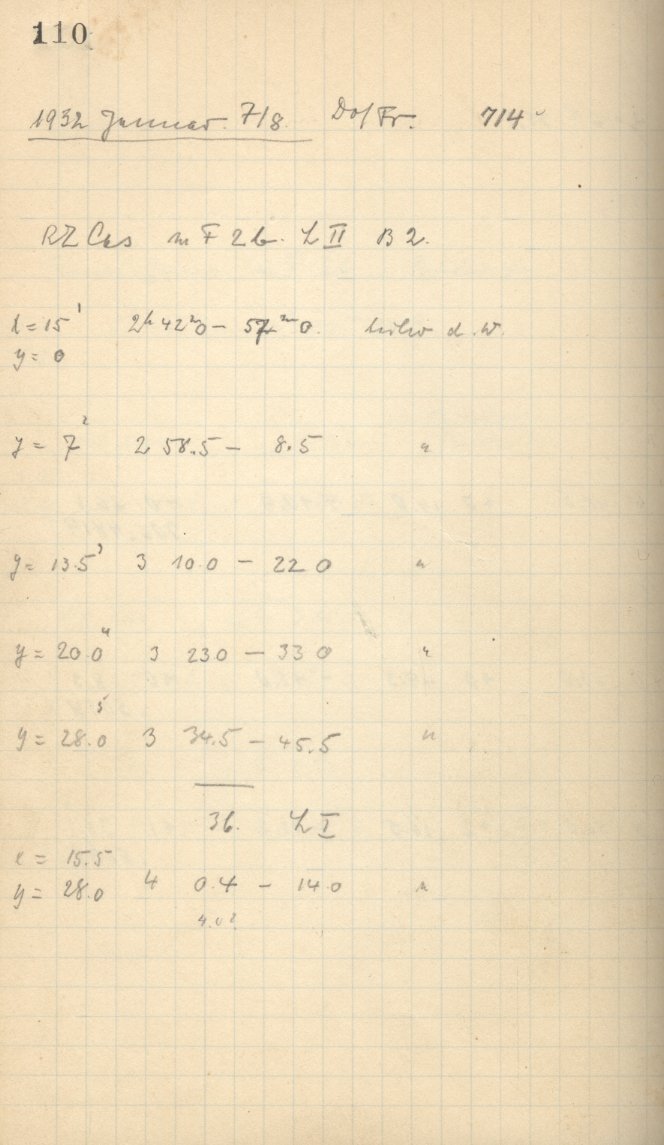 110
1932 Januar. 7/8. Do/Fr. 714
RZ Cas m F 2b. L II B 2.
x = 15 ¹ 2ʰ 42ᵐ0 – 57ᵐ0. d. W.
y = 0
y = 7 ² 2 58.5 – 8.5 "
y = 13.5 ³ 3 10.0 – 22 0 "
y = 20.0 ⁴ 3 23 0 – 33 0 "
y = 28.0 ⁵ 3 34.5 – 45.5 "
3b. L I
x = 15.5
y = 28.0 4 0.4 – 14.0 "
4.0?